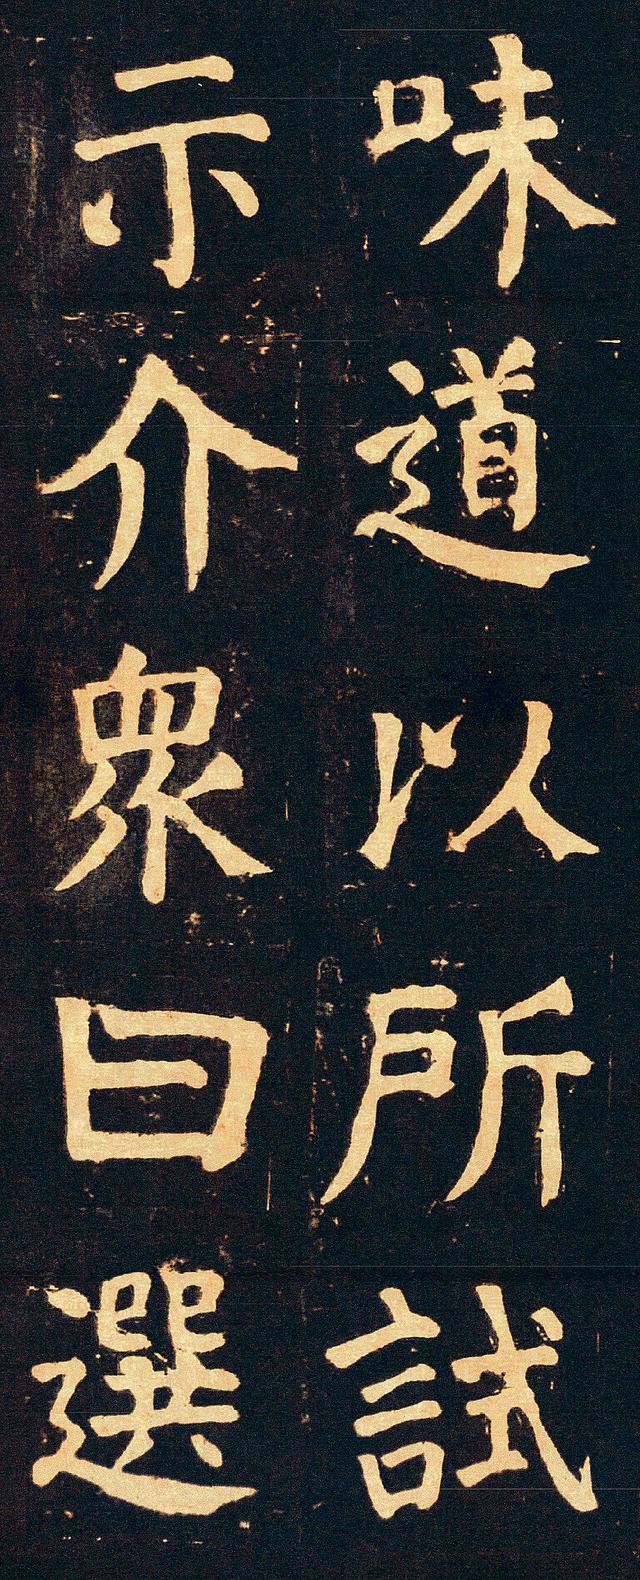 味道以所試
示介衆曰選